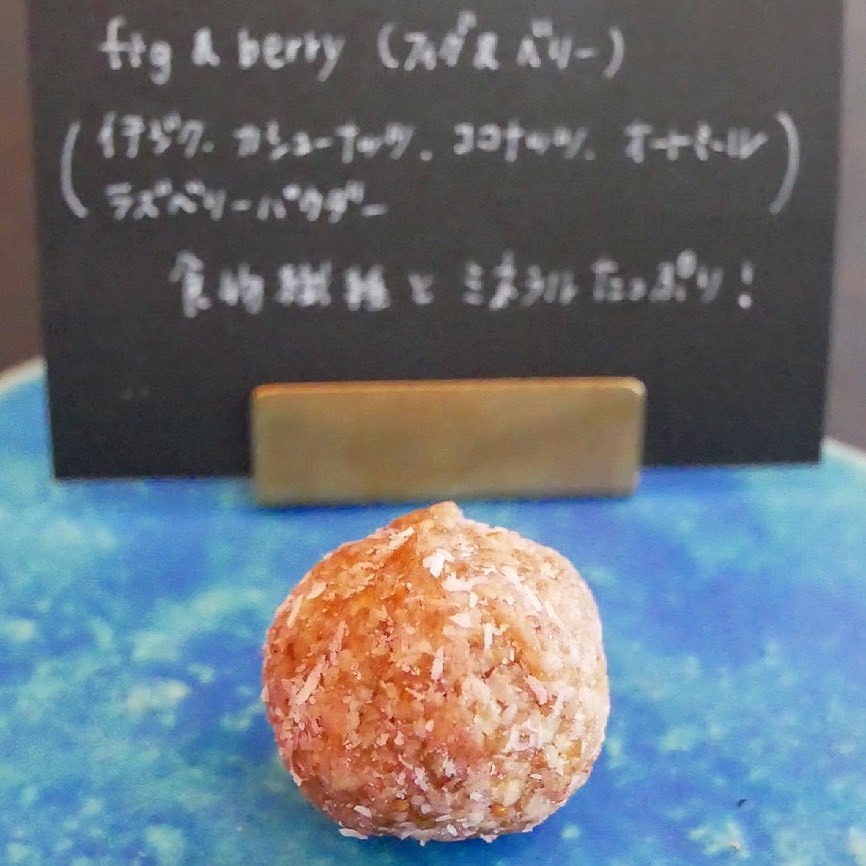 fig & berry (フィグ&ベリー)
(イチジク、カシューナッツ、ココナッツ、オートミール
ラズベリーパウダー)
食物繊維とミネラルたっぷり!